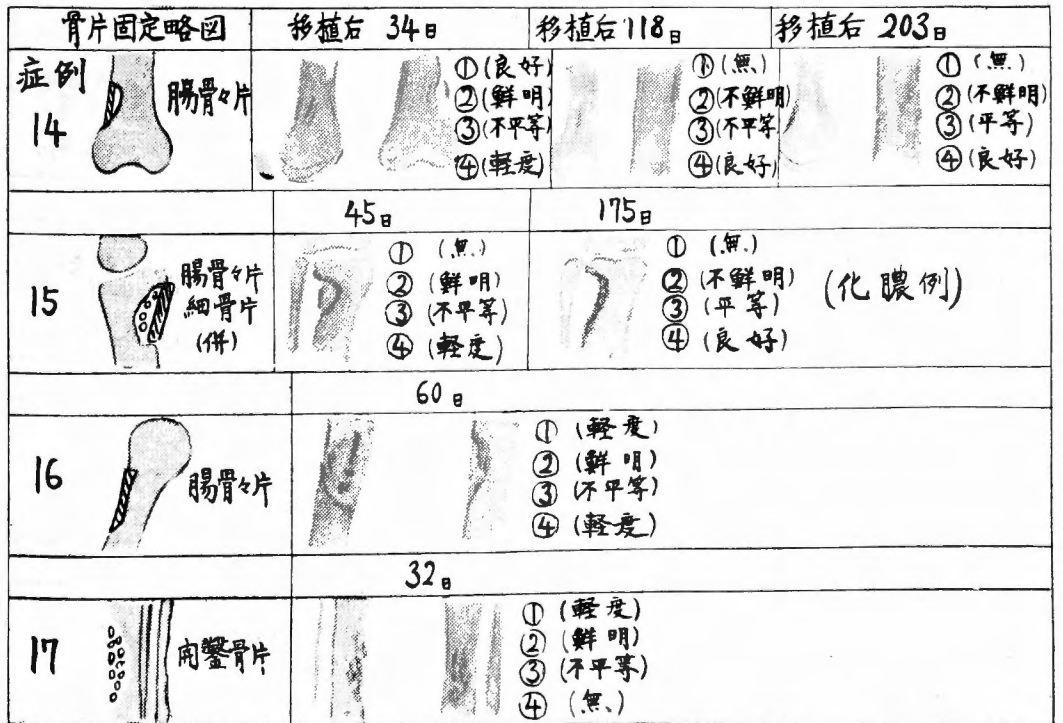 骨片固定略図 移植后 34日 移植后 118日 移植后 203日
症例
14
腸骨々片
①(良好)
②(鮮明)
③(不平等)
④(軽度)
①(無)
②(不鮮明)
③(不平等)
④(良好)
①(無)
②(不鮮明)
③(平等)
④(良好)
45日 175日
15
腸骨々片
細骨片
(併)
①(無)
②(鮮明)
③(不平等)
④(軽度)
①(無)
②(不鮮明)
③(平等)
④(良好)
(化膿例)
60日
16
腸骨々片
①(軽度)
②(鮮明)
③(不平等)
④(軽度)
32日
17
開鑿骨片
①(軽度)
②(鮮明)
③(不平等)
④(無)